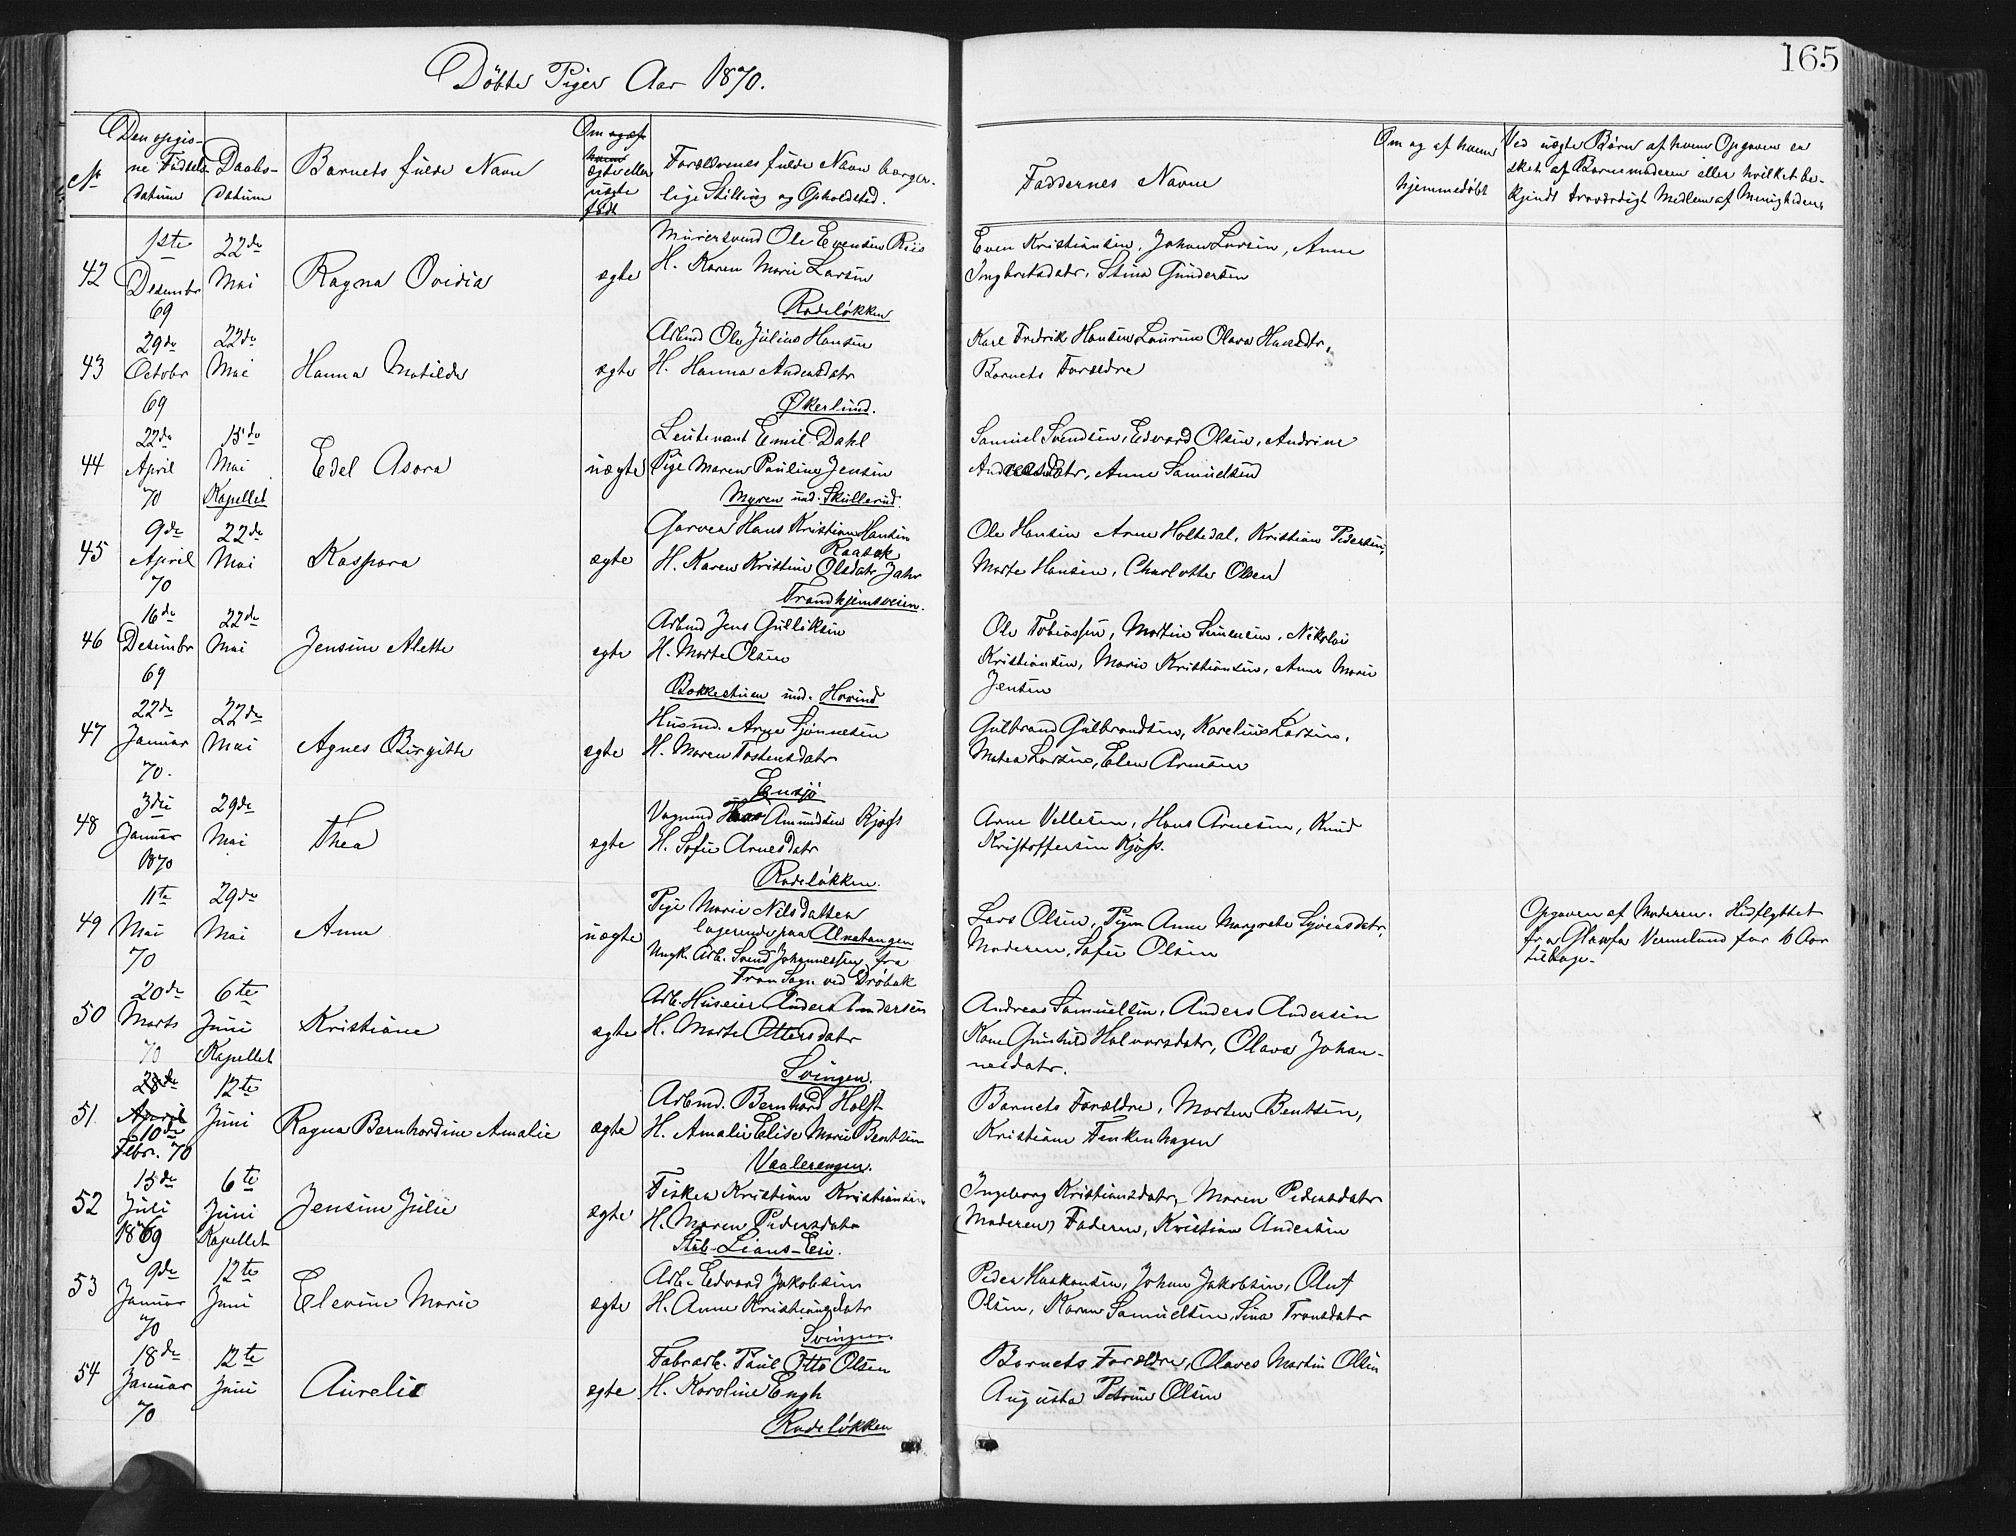 165
Døbte Piger Aar 1870.
№
Den opgivne Fødsels Datum
Daabs-Datum
Barnets fulde Navn
ægte eller uægte født
Forældrenes fulde Navn borgerlige Stilling og Opholdsted.
Faddernes Navne
Om og af hvem hjemmedøbt
Ved uægte Børn af hvem Opgaven er skeet af Barnemoderen eller hvilket bekjendt troværdigt Medlem af Menigheden
42
1ste Desembr 69
22de Mai
Ragna Ovidia
ægte
Murersvend Ole Evensen Riis
H. Karen Marie Larsen
Rodeløkken
Even Kristiansen, Johan Larsen, Anne
Ingbretsdatr, Stina Gundersen
43
29de Octobr 69
22de Mai
Hanna Matilde
ægte
Arbmd Ole Julius Hansen
H. Hanna Andersdatr
Økerlund.
Karl Fredrik Hansen, Laurine Olava Hansdtr,
Barnets Forældre
44
22de April 70
15de Mai Kapellet
Edel Asora
uægte
Leutenant Emil Dahl
Pige Maren Pauline Jensen
Myren und. Skullerud
Samuel Svendsen, Edvard Olsen, Andrine
Andreasdatr, Anne Samuelsen
45
9de April 70
22de Mai
Kaspara
ægte
Garver Hans Kristian Hansen
Raabak
H. Karen Kristine Olsdatr Jahr
Trondhjemsveien.
Ole Hansen Arne Holtedal, Kristian Pedersen,
Marte Hansen, Charlotte Olsen
46
16de Desembr 69
22de Mai
Jensine Alette
ægte
Arbmd Jens Gulliksen
H. Marte Olsen
Bakkestuen und. Hovind
Ole Tobiassen, Martin Simensen, Nikolai
Kristiansen, Marie Kristiansen, Anne Marie
Jensen
47
22de Januar 70.
22de Mai
Agnes Birgitte
ægte
Husmd. Arne Sjønnesen
H. Maren Tostensdatr
Ensjø
Gulbrand Gulbrandsen, Karelius Larsen,
Matea Larsen, Elen Arnesen
48
3die Januar 1870
29de Mai
Thea
ægte
Vognmd Amundsen Kjøss
H. Sofie Arnesdatr
Rodeløkken.
Arne Vellesen, Hans Arnesen, Knud
Kristoffersen Kjøss.
49
11te Mai 70
29de Mai
Anne
uægte
Pige Marie Nilsdatter
logerende paa Alnatangen
Ungk. Arb. Svend Johannessen fra
Fron Sogn ved Drøbak
Lars Olsen, Pigen Anne Margrete Syversdatr,
Moderen, Sofie Olsen
Opgaven af Moderen. Hidflyttet
fra Glawfa Vermeland for 6 Aar
tilbage.
50
20de Marts 70
6te Juni Kapellet
Kristiane
ægte
Arb. Huseier Anders Andersen
H. Marte Ottersdatr
Svingen.
Andreas Samuelsen, Anders Andersen
Kone Gunhild Halvorsdatr, Olava Johan-
nesdatr.
51.
28de April
10de Febr. 70
12te Juni
Ragna Bernhardine Amalie
ægte
Arbmd. Bernhard Holst
H. Amalie Elise Marie Bentsen
Vaalerengen.
Barnets Forældre, Morten Bentsen,
Kristiane Finkenhagen
52
15de Juli 1869
6te Juni Kapellet
Jensine Julie
ægte
Fisker Kristian Kristiansen
H. Maren Pedersdatr
Stub-Lians-Eie.
Ingeborg Kristiansdatr, Maren Pedersdatr
(Moderen) Faderen, Kristian Andersen
53
9de Januar 70
12te Juni
Elevine Marie
ægte
Arb. Edvard Jakobsen
H. Anne Kristiansdatr
Svingen.
Peder Haakonsen, Johan Jakobsen, Oluf
Olsen, Karen Samuelsen, Sina Transdatr
54
18de Januar 70
12te Juni
Aurelie
ægte
Fabrarb. Paul Otto Olsen
H. Karoline Engh
Rodeløkken
Barnets Forældre, Olaves Martin Olsen
Augusta Petrine Olsen